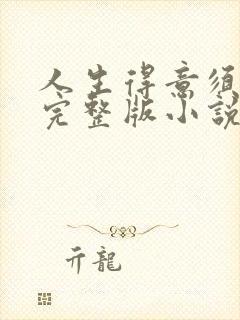 人生得意須
完整版小說
亓龍